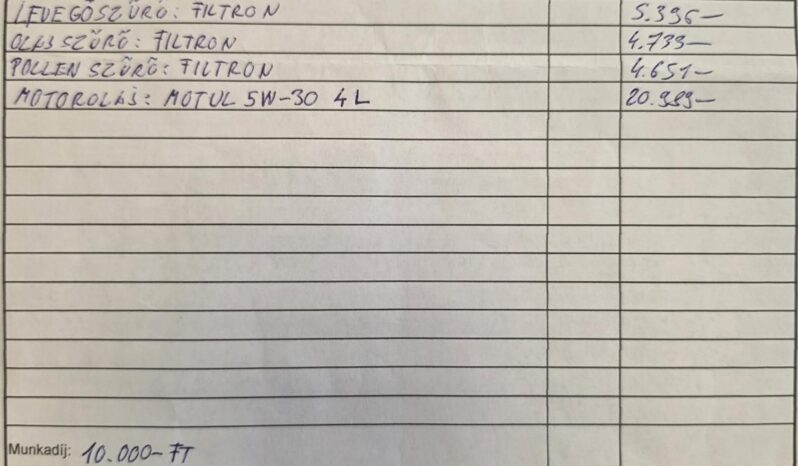 LEVEGŐSZŰRŐ: FILTRON 5.396-
OLAJSZŰRŐ: FILTRON 4.739-
POLLENSZŰRŐ: FILTRON 4.651-
MOTOROLAJ: MOTUL 5W-30 4L 20.989-
Munkadíj: 10.000- FT